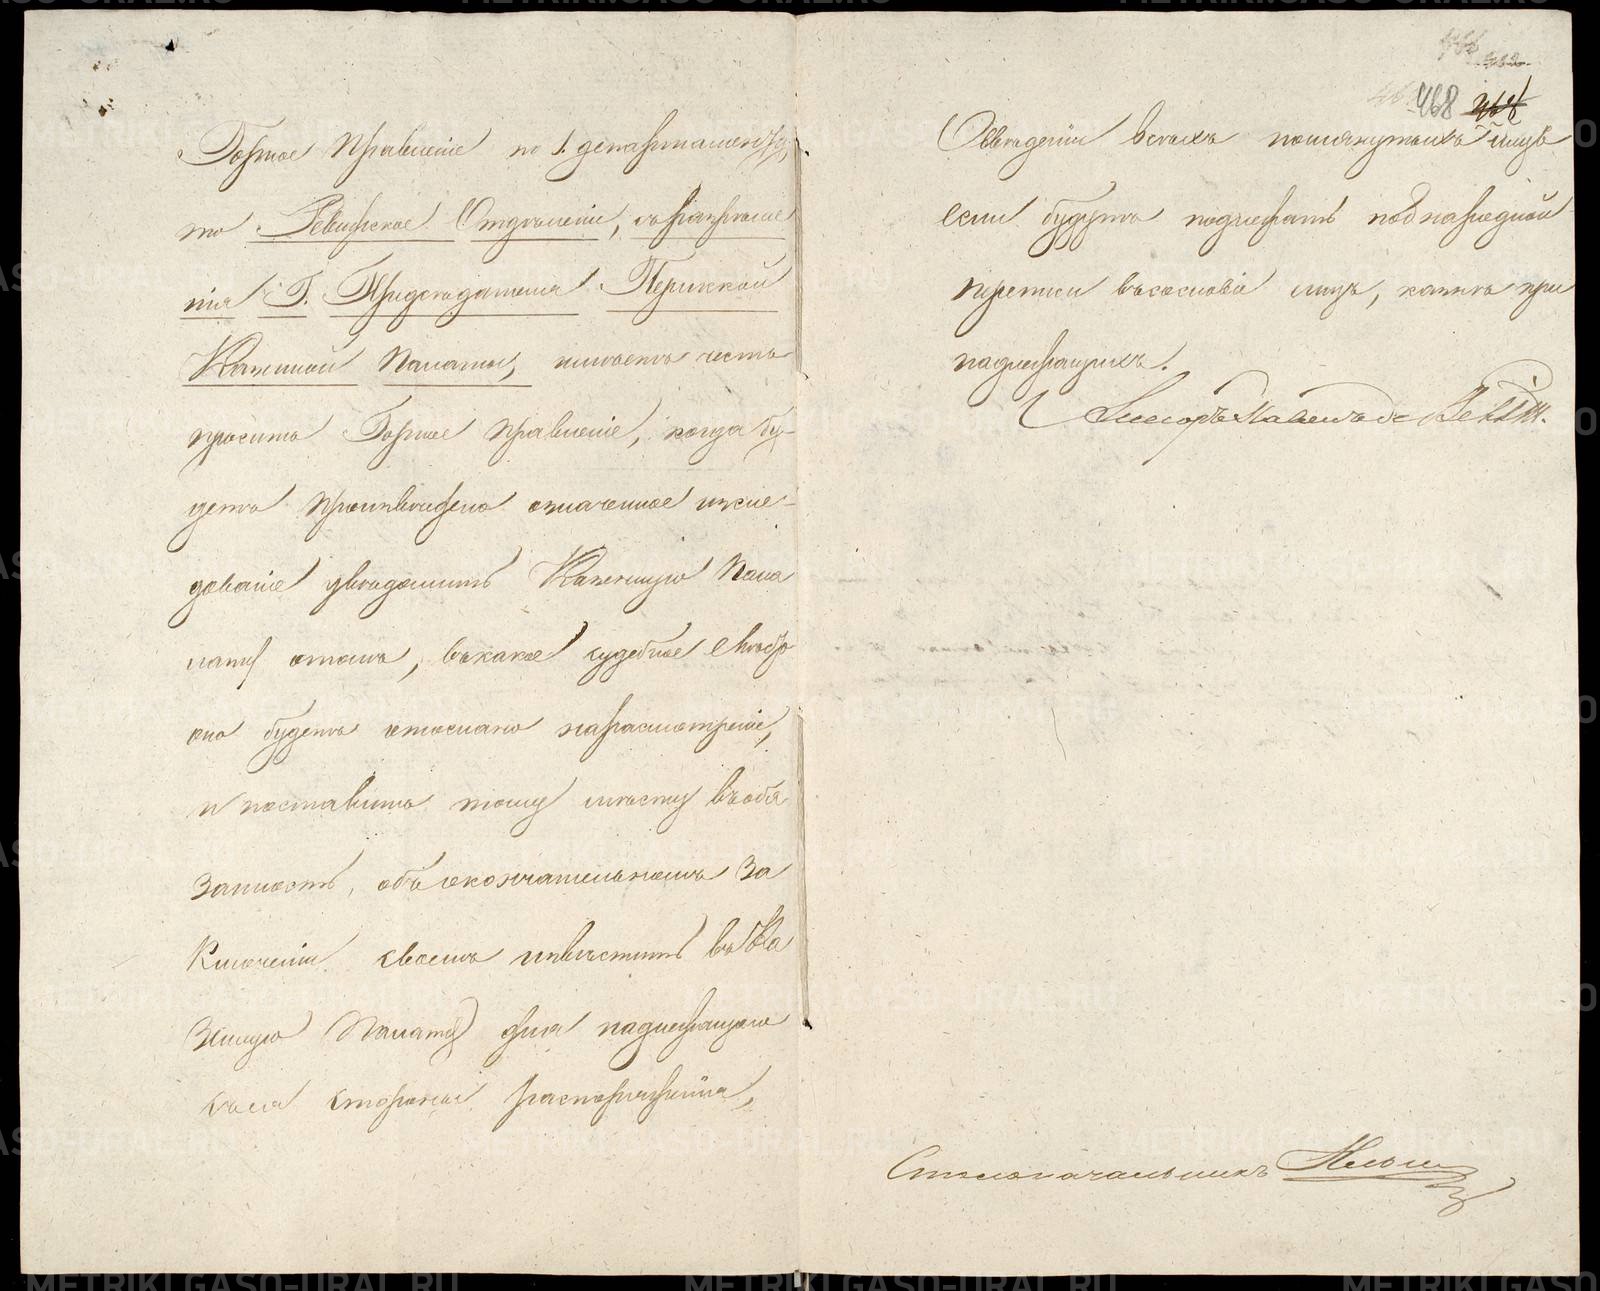 Горное Правленіе по 1. департаменту,
то Ревизское Отделеніе, съ разреше
нія Г. Председателя Пермской
Казенной Палаты, имѣетъ честь
просить Горное Правленіе, когда бу-
детъ произведено означенное изсле-
дованіе уведомить Казенную Пала
ту о томъ, въ какое судебное место
оно будетъ отослано на расмотреніе,
и поставить тому месту въ обя
занность, объ окончательномъ за
ключеніи своемъ известить въ Ка
зенную Палату для надлежащаго
съ ея стороны распоряженія,
О введеніи всехъ помянутыхъ лицъ
если будутъ подлежать под народной
переписи въ сословіе лицъ, къ
надлежащихъ.
Столоначальникъ
468
METRIKI.GASO-URAL.RU